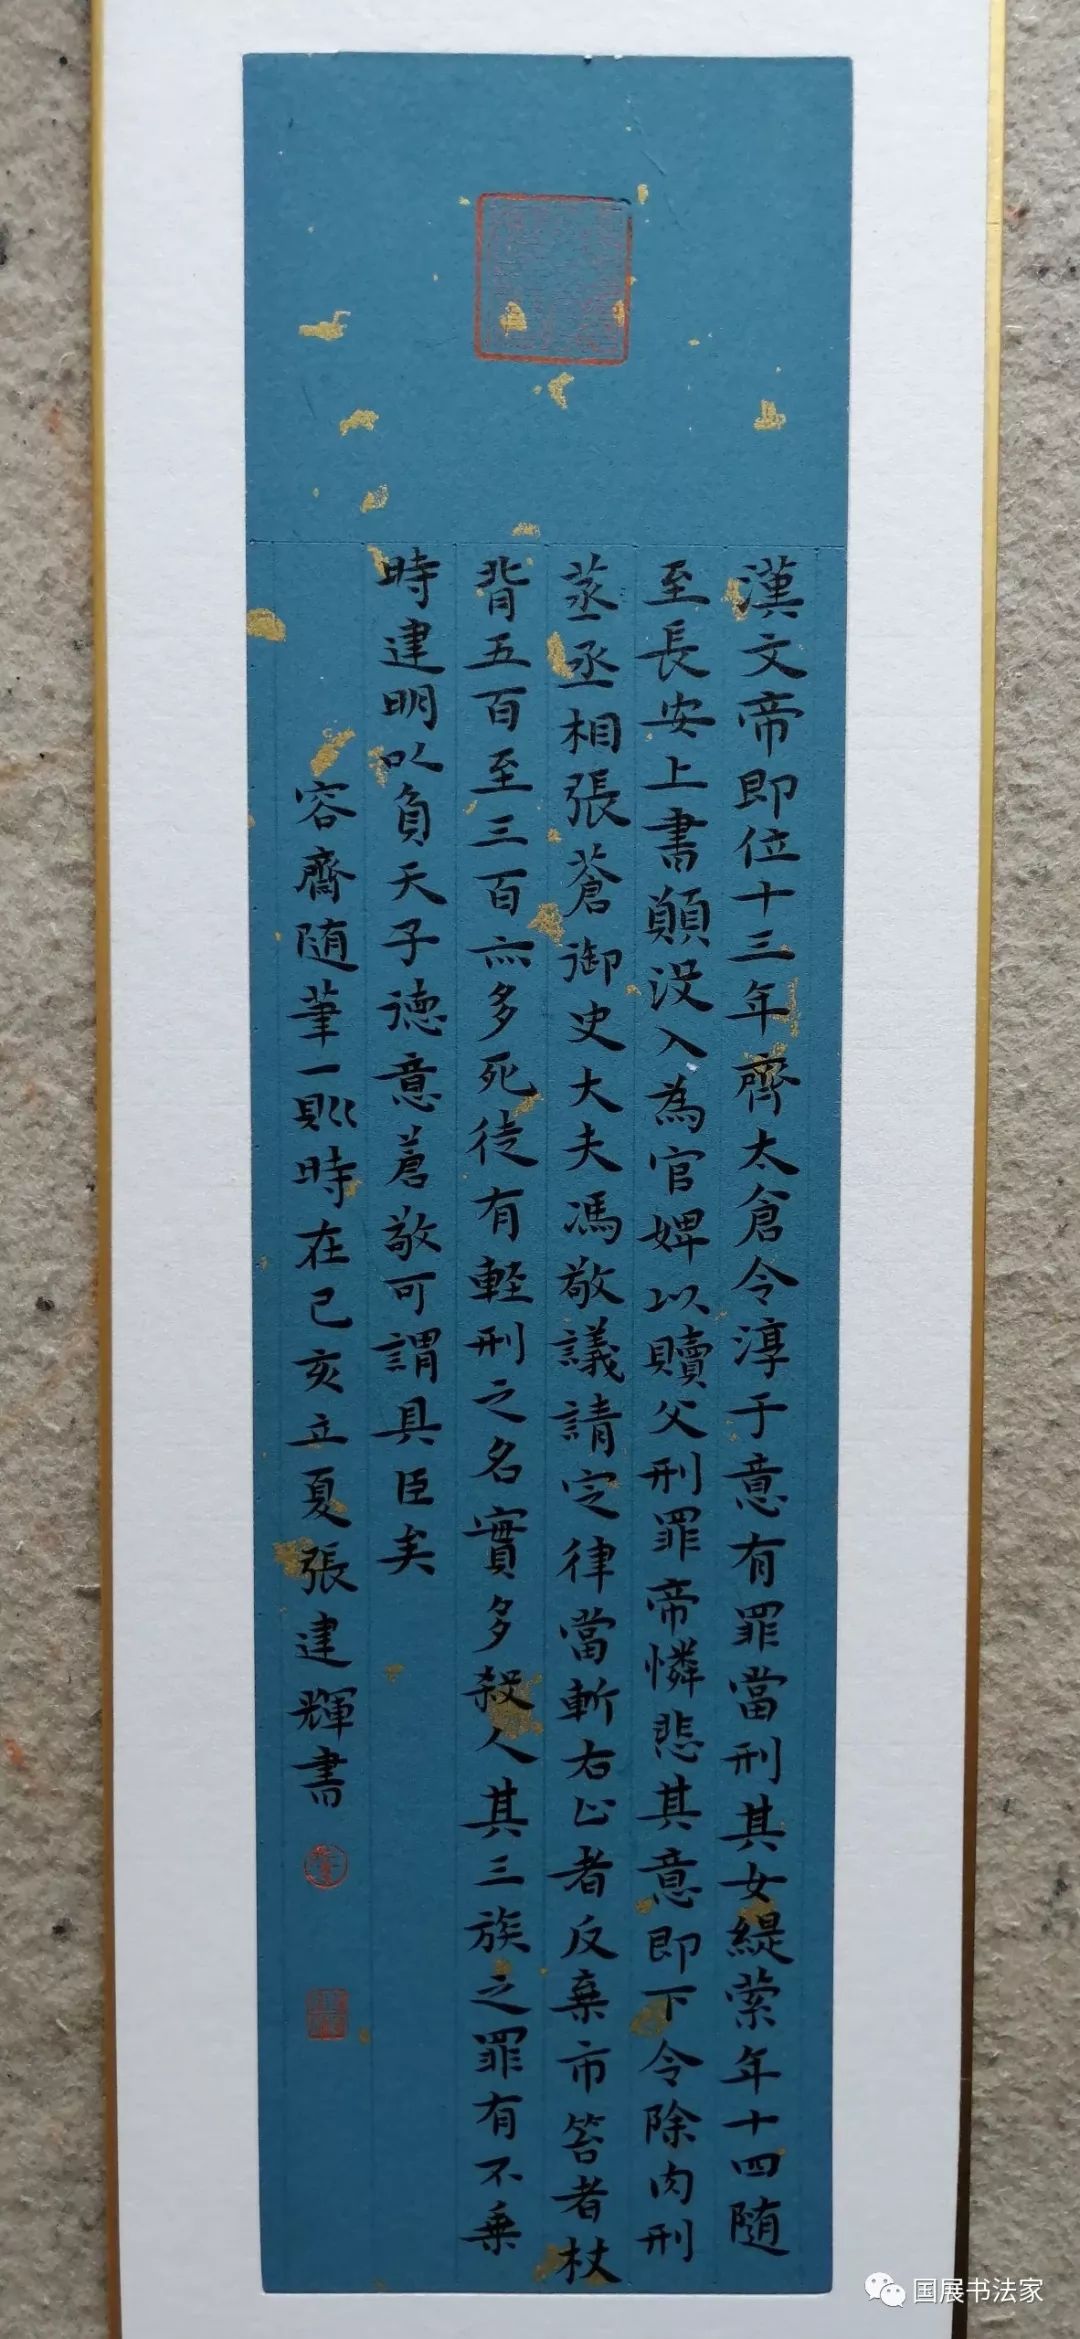 漢文帝即位十三年齊太倉令淳于意有罪當刑其女緹縈年十四随
至長安上書願没入為官婢以贖父刑罪帝憐悲其意即下令除肉刑
蒸丞相張蒼御史大夫馮敬議請定律當斬右止者反棄市笞者杖
背五百至三百亦多死徒有軽刑之名實多殺人其三族之罪有不乗
時建明以負天子德意蒼敬可謂具臣矣
容齋随筆一則時在己亥立夏張建輝書
国展书法家